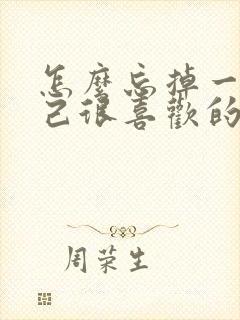 怎麼忘掉一
己很喜歡的
周荣生